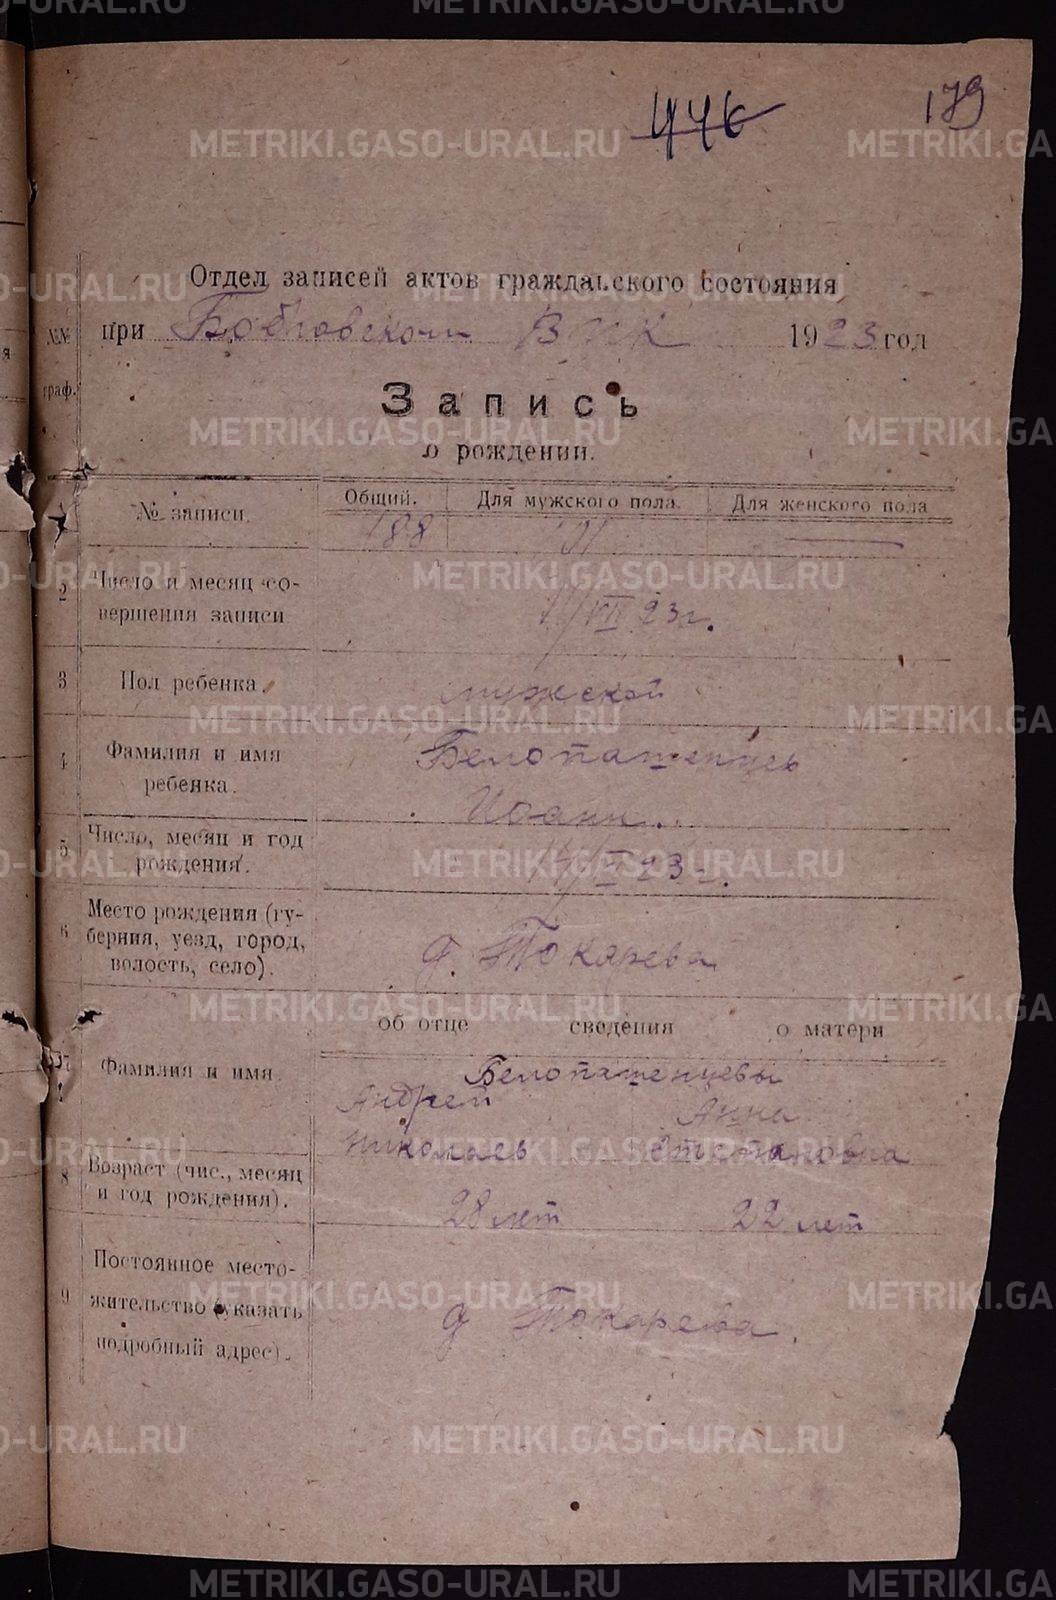 446
179
Отдел записей актов гражданского состояния
при Бобровском ВИК 1923 год
№№ граф.
Запись
о рождении.
1 № записи. Общий. Для мужского пола. Для женского пола
188 101
2 Число и месяц со-
вершения записи
/VII 23 г.
3 Пол ребенка. мужской
4 Фамилия и имя
ребенка.
Белопашенцев
Иоанн.
5 Число, месяц и год
рождения.
23 г.
6 Место рождения (гу-
берния, уезд, город,
волость, село).
д. Токарева
об отце сведения о матери
7 Фамилия и имя
Белопашенцевы
Андрей Анна
Николаев Степановна
8 Возраст (чис., месяц
и год рождения).
28 лет 22 лет
9 Постоянное место-
жительство (указать
подробный адрес).
д Токарева.
METRIKI.GASO-URAL.RU